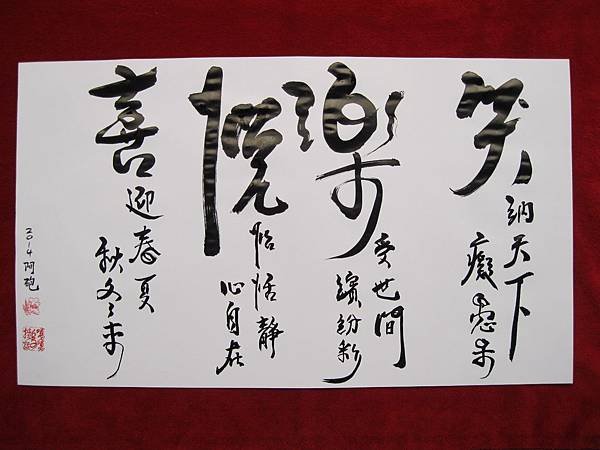 笑
納天下
癡愚呆
樂
受世間
繽紛彩
悅
怡恬靜
心自在
喜
迎春夏
秋冬來
2014 阿砲